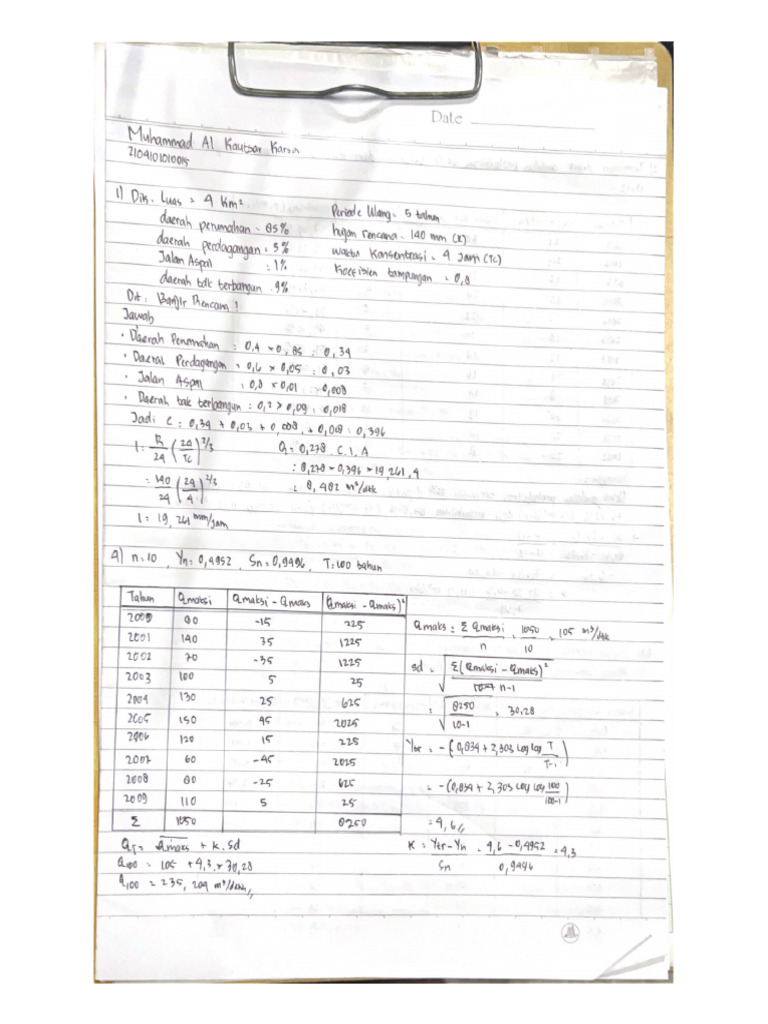 Date
Muhammad Al Kautsar Karsa
2104101010015
1) Dik. Luas = 4 km²
Periode Ulang = 5 tahun
daerah perumahan = 85%
hujan rencana = 140 mm (R)
daerah perdagangan = 5%
waktu Konsentrasi = 4 Jam (TC)
Jalan Aspal : 1%
Koefisien tampungan = 0,8
daerah tdk terbangun . 9%
Dit : Banjir Rencana ?
Jawab
• Daerah Perumahan : 0,4 × 0,85 : 0,34
• Daerah Perdagangan = 0,6 × 0,05 : 0,03
• Jalan Aspal : 0,8 × 0,01 : 0,008
• Daerah tak terbangun : 0,2 × 0,09 : 0,018
Jadi C : 0,34 + 0,03 + 0,008 + 0,018 : 0,396
I = R/24 (24/TC)^2/3
Q = 0,278 . C . I . A
: 0,278 × 0,396 × 19,261 . 4
= 140/24 (24/4)^2/3
: 8,482 m³/dtk
I = 19,261 mm/jam
4) n = 10 , Yn = 0,4952 , Sn = 0,9496 , T = 100 tahun
Tahun Qmaksi Qmaksi - Qmaks (Qmaksi - Qmaks)²
2000 90 -15 225
2001 140 35 1225
2002 70 -35 1225
2003 100 5 25
2004 130 25 625
2005 150 45 2025
2006 120 15 225
2007 60 -45 2025
2008 80 -25 625
2009 110 5 25
Σ 1050 8250
Qmaks = Σ Qmaksi / n = 1050 / 10 = 105 m³/dtk
sd = √ Σ(Qmaksi - Qmaks)² / n-1
= √ 8250 / 10-1 = 30,28
Ytr = -(0,834 + 2,303 log log T / T-1)
= -(0,834 + 2,303 log log 100 / 100-1)
= 4,6
K = Ytr - Yn / Sn = 4,6 - 0,4952 / 0,9496 = 4,3
QT = Qmaks + K . sd
Q100 = 105 + 4,3 × 30,28
Q100 = 235,204 m³/detik